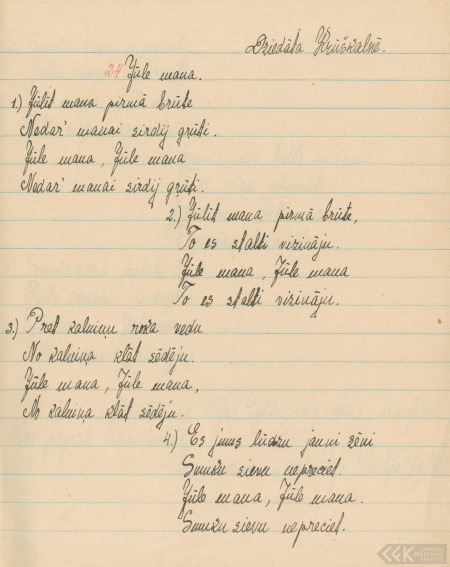 Dziedāta Krūškalnē.
24 Jūle mana.
1.) Jūlīt mana pirmā brūte
Nedar' manai sirdij grūti.
Jūle mana, Jūle mana
Nedar' manai sirdij grūti.
2.) Jūlīt mana pirmā brūte,
To es stalti vizināju.
Jūle mana, Jūle mana
To es stalti vizināju.
3.) Pret kalniņu roka vedu
No kalniņa klāt sēdēju.
Jūle mana, Jūle mana,
No kalniņa klāt sēdēju.
4.) Es jums lūdzu jauni zēni
Smuku sievu nepreciet.
Jūle mana, Jūle mana.
Smuku sievu nepreciet.